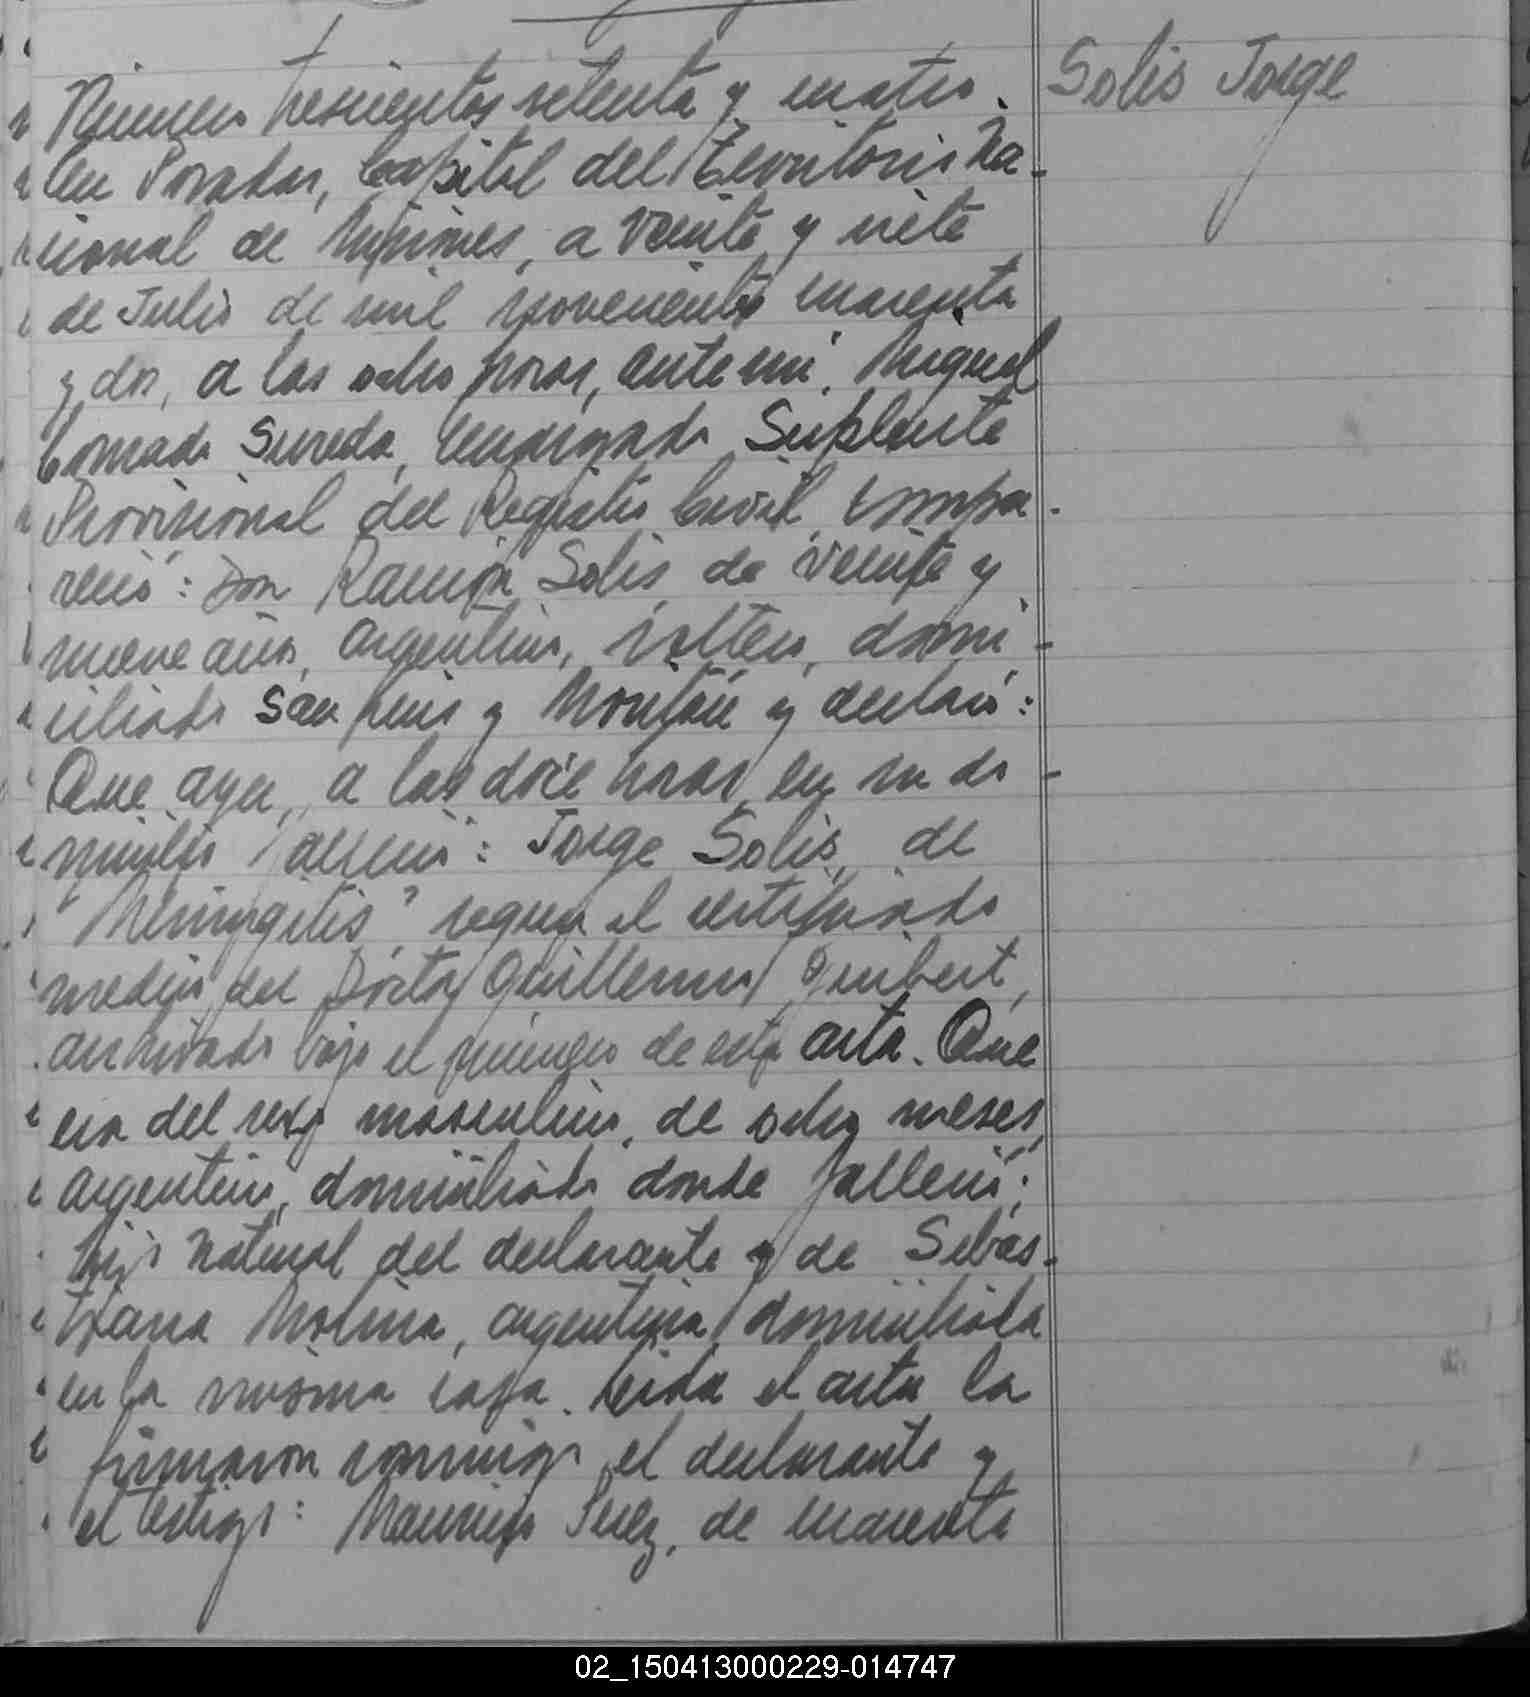 Solis Jorge
Número trescientos setenta y cuatro.
En Posadas, Capital del Territorio Na-
cional de Misiones, a veinte y siete
de Julio de mil novecientos cuarenta
y dos, a las ocho horas, ante mi, Miguel
Conrado Sureda, Encargado Suplente
Provisional del Registro Civil, compa-
reció: Don Ramón Solis, de veinte y
nueve años, argentino, soltero, domi-
ciliado San Luis y y declaró:
Que ayer, a las doce horas, en su do-
micilio falleció: Jorge Solis, de
"Meningitis", según el certificado
medico del Doctor Guillermo Guibert,
archivado bajo el número de esta acta. Que
era del sexo masculino, de ocho meses,
argentino, domiciliado donde falleció;
hijo natural del declarante y de Sebas-
tiana Molina, argentina, domiciliada
en la misma casa. Leida el acta la
firmaron conmigo el declarante y
el testigo: Mauricio Perez, de cuarenta
02_150413000229-014747